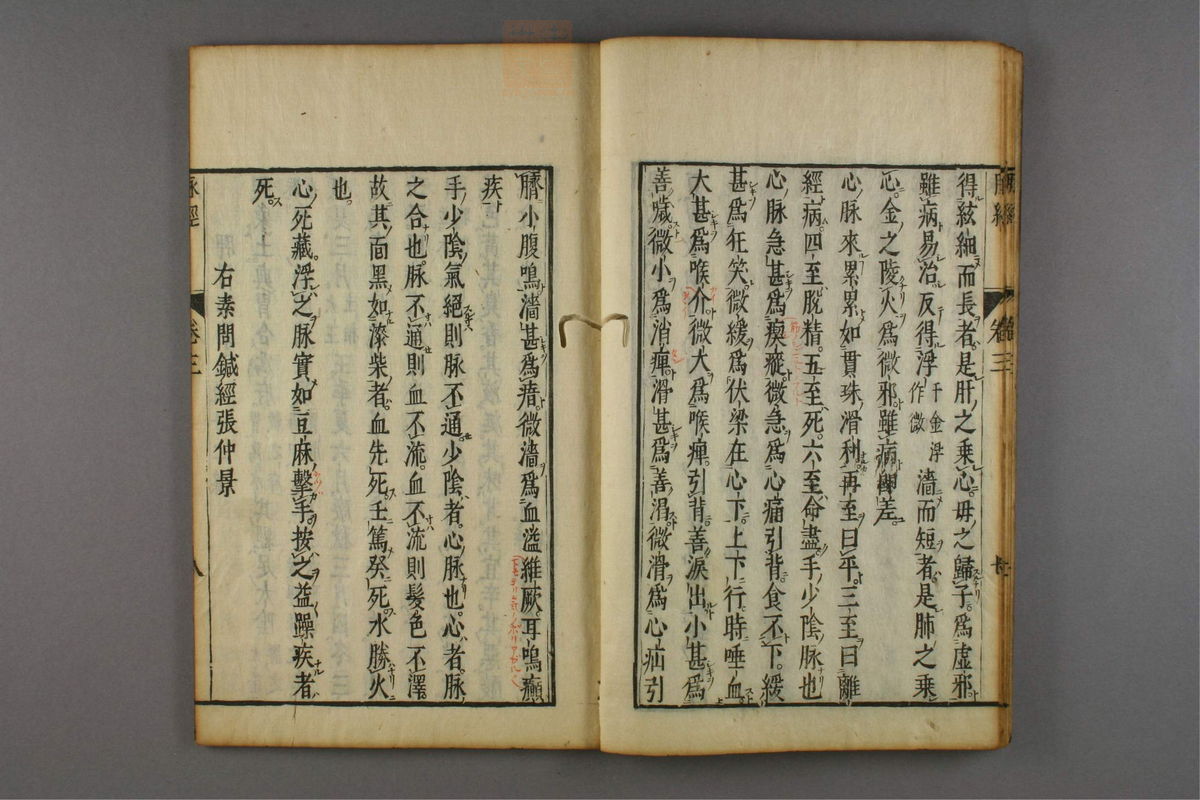 脉經 卷三
得弦細而長者是肝之乗心母之歸子爲虚邪
雖病易治反得浮 千金浮作微 濇而短者是肺之乗
心金之陵火爲微邪雖病即差
心脉來累累如貫珠滑利再至曰平三至曰離
經病四至脱精五至死六至命盡手少陰脉也
心脉急甚爲瘈瘲微急爲心痛引背食不下緩
甚爲狂笑微緩爲伏梁在心下上下行時唾血
大甚爲喉介微大爲喉痺引背善淚出小甚爲
善噦微小爲消癉滑甚爲善渇微滑爲心疝引
臍小腹鳴濇甚爲瘖微濇爲血溢維厥耳鳴癲
疾
手少陰氣絕則脉不通少陰者心脉也心者脉
之合也脉不通則血不流血不流則髮色不澤
故其面黑如漆柴者血先死壬篤癸死水勝火
也
心死藏浮之脉實如豆麻擊手按之益躁疾者
死
右素問鍼經張仲景
脉經 卷三 八